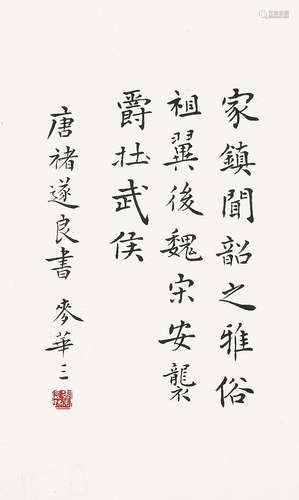 家鎮聞韶之雅俗
祖翼後魏宋安襲
爵壯武侯
唐褚遂良書 麥華三